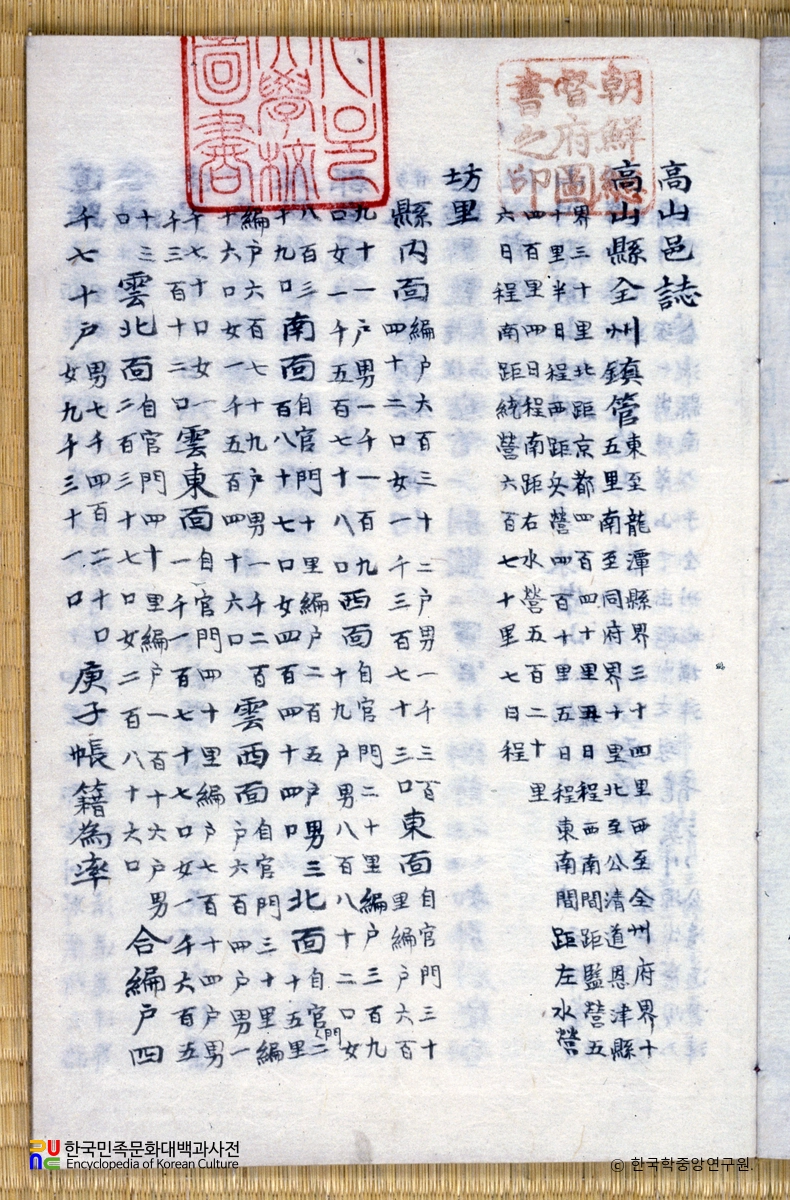 高山邑誌
高山縣全州鎭管東至龍潭縣界三十四里西至全州府界十
五里南至同府界十里北至公清道恩津縣
界三十里北距京都四百四十里五日程西南間距監營五
十里半日程西距兵營四百十里五日程東南間距左水營
四百里四日程南距右水營五百二十里
六日程南距統營六百七十里七日程
坊里
縣內面編戶六百三十二戶男一千三百
四十二口女一千三百七十三口東面自官門三十
里編戶六百
九十一戶男一千一百九
口女一千五百七十八口西面自官門二十里編戶三百九
十九戶男八百八十二口女
八百三
十九口南面自官門十里編戶二百五戶男三
百八十七口女四百四十四口北面自官門二
十五里
編戶六百七十九戶男一千二百
十六口女一千五百四十六口雲西面自官門三十里編
戶六百四戶男一
千七十口女一
千三百十二口雲東面自官門四十里編戶七百十四戶男
一千一百七十七口女一千六百五
十三
口雲北面自官門四十里編戶一百十六戶男
二百三十七口女二百八十六口合編戶四
千七十戶男七千四百二十口
女九千三十一口庚子帳籍為率
朝鮮總
督府圖
書之印
大學校
圖書
한국민족문화대백과사전
Encyclopedia of Korean Culture
ⓒ 한국학중앙연구원